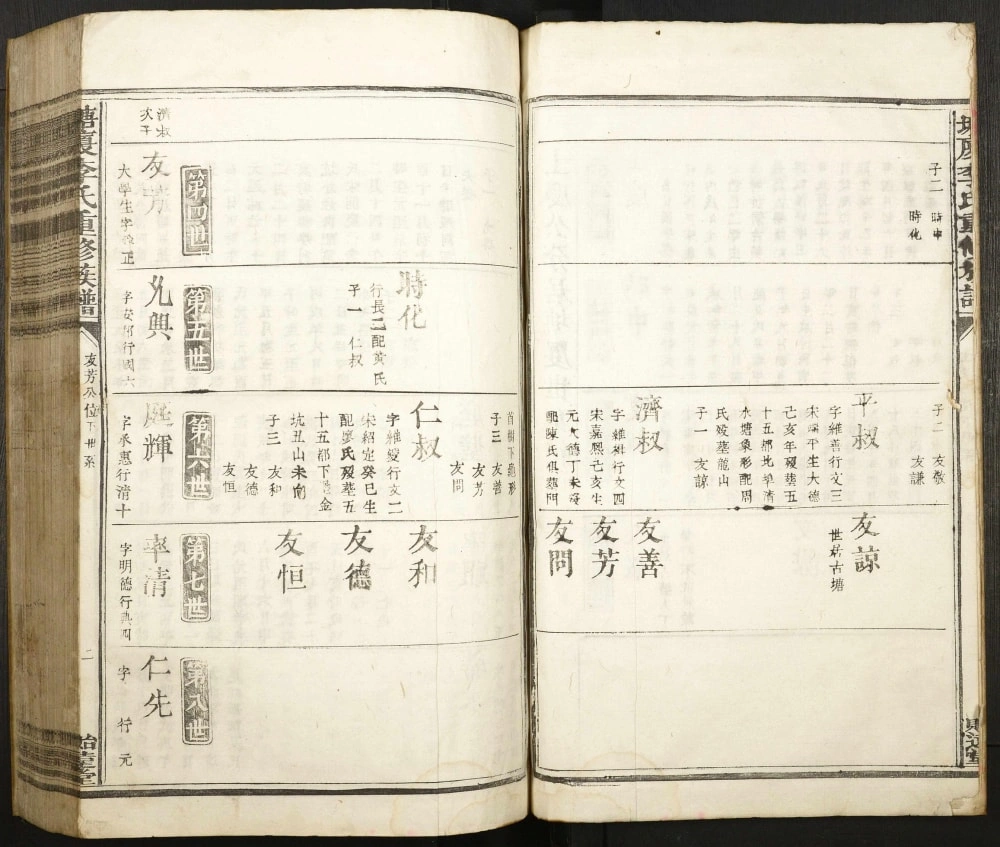 李氏重修族譜
子二 時中
時化
子二 友敬
友謙
平叔
字維善行文三
宋端平生大德
己亥年歿葬五
十五都地華清
水塘象形配周
氏歿葬龍山
子一 友諒
濟叔
字維楫行文四
宋嘉熙己亥生
元大德丁未歿
配陳氏俱葬門
友諒
世 古塘
友善
友芳
友問
時化
行長二配黃氏
子一 仁叔
首樹下龜形
子三 友善
友芳
友問
仁叔
字維綬行文二
宋紹定癸巳生
配廖氏歿葬五
十五都下 金
坑丑山未向
子三 友和
友德
友恒
友和
友德
友恒
第四世
第五世
第六世
第七世
第八世
濟叔
次子
友芳
大學生字 正
允興
字安邦行國六
庭輝
字承惠行清十
率清
字明德行 四
仁先
字 行元
塘廈李氏重修族譜
友芳公位下世系
二